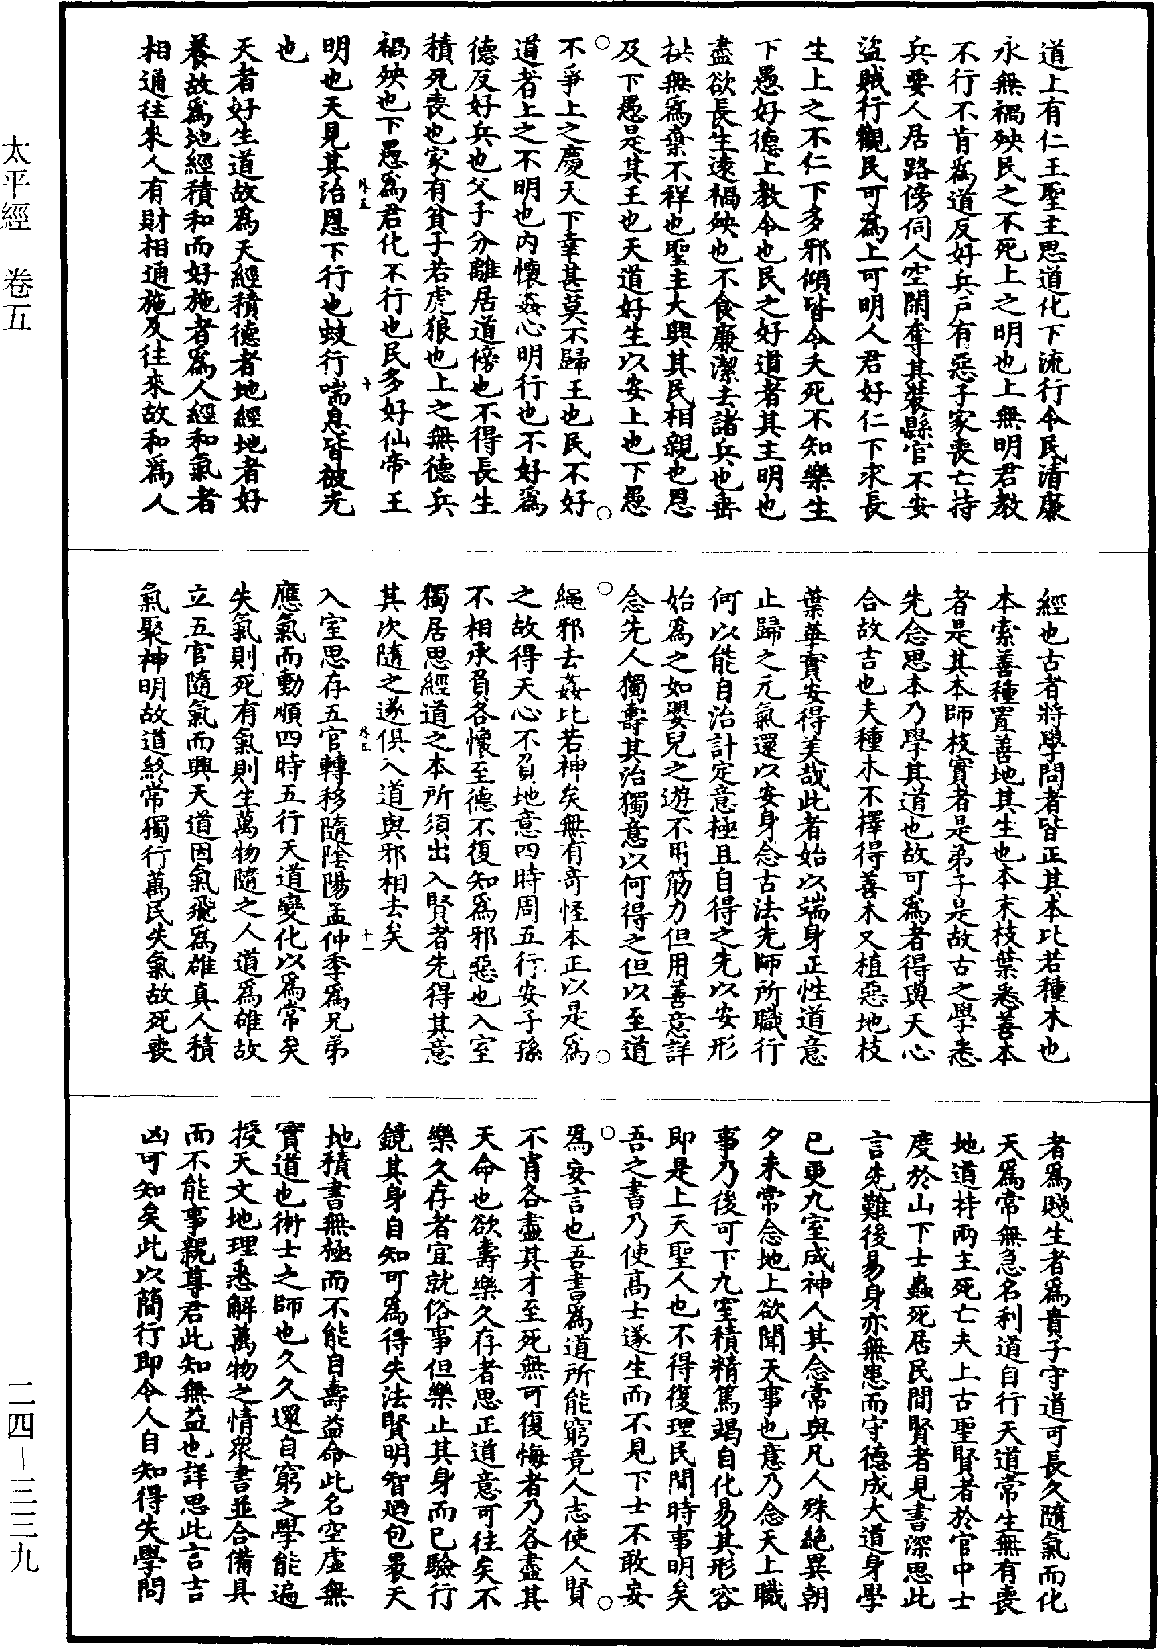 太平經　卷五
二四—三三九
道上有仁王聖主思道化下流行令民清廉
永無禍殃民之不死上之明也上無明君教
不行不肯為道反好兵戶有惡子家喪亡持
兵要人居路傍伺人空閑奪其裝縣官不安
盜賊行觀民可為上可明人君好仁下求長
生上之不仁下多邪傾皆令夭死不知樂生
下愚好德上教令也民之好道者其主明也
盡欲長生遠禍殃也不食廉潔去諸兵也垂
拱無為棄不祥也聖主大興其民相親也恩
及下愚是其王也天道好生以安上也下愚
不爭上之慶天下幸甚莫不歸王也民不好
道者上之不明也內懷姦心明行也不好為
德反好兵也父子分離居道傍也不得長生
積死喪也家有貧子若虎狼也上之無德兵
禍殃也下愚為君化不行也民多好仙帝王
外五　十
明也天見其治恩下行也蚑行喘息皆被光
也
天者好生道故為天經積德者地經地者好
養故為地經積和而好施者為人經和氣者
相通往來人有財相通施及往來故和為人
經也古者將學問者皆正其本比若種木也
本索善種置善地其生也本末枝葉悉善本
者是其本師枝實者是弟子是故古之學悉
先念思本乃學其道也故可為者得與天心
合故吉也夫種木不擇得善木又植惡地枝
葉華實安得美哉此者始以端身正性道意
止歸之元氣還以安身念古法先師所職行
何以能自治計定意極且自得之先以安形
始為之如嬰兒之遊不用筋力但用善意詳
念先人獨壽其治獨意以何得之但以至道
繩邪去姦比若神矣無有奇怪本正以是為
之故得天心不負地意四時周五行安子孫
不相承負各懷至德不復知為邪惡也入室
獨居思經道之本所須出入賢者先得其意
其次隨之遂俱入道與邪相去矣
外五　十一
入室思存五官轉移隨陰陽孟仲季為兄弟
應氣而動順四時五行天道變化以為常矣
失氣則死有氣則生萬物隨之人道為雄故
立五官隨氣而興天道因氣飛為雄真人積
氣聚神明故道終常獨行萬民失氣故死喪
者為賤生者為貴子守道可長久隨氣而化
天為常無急名利道自行天道常生無有喪
地道持兩主死亡夫上古聖賢者於官中士
度於山下士蟲死居民間賢者見書深思此
言先難後易身亦無患而守德成大道身學
已更九室成神人其念常與凡人殊絕異朝
夕未常念地上欲聞天事也意乃念天上職
事乃後可下九室積精篤竭自化易其形容
即是上天聖人也不得復理民間時事明矣
吾之書乃使高士遂生而不見下士不敢安
為安言也吾書為道所能窮竟人志使人賢
不肖各盡其才至死無可復悔者乃各盡其
天命也欲壽樂久存者思正道意可往矣不
樂久存者宜就俗事但樂止其身而已驗行
鏡其身自知可為得失法賢明智過包裹天
地積書無極而不能自壽益命此名空虛無
實道也術士之師也久久還自窮之學能遍
授天文地理悉解萬物之情眾書並合備具
而不能事親尊君此知無益也詳思此言吉
凶可知矣此以簡行即令人自知得失學問